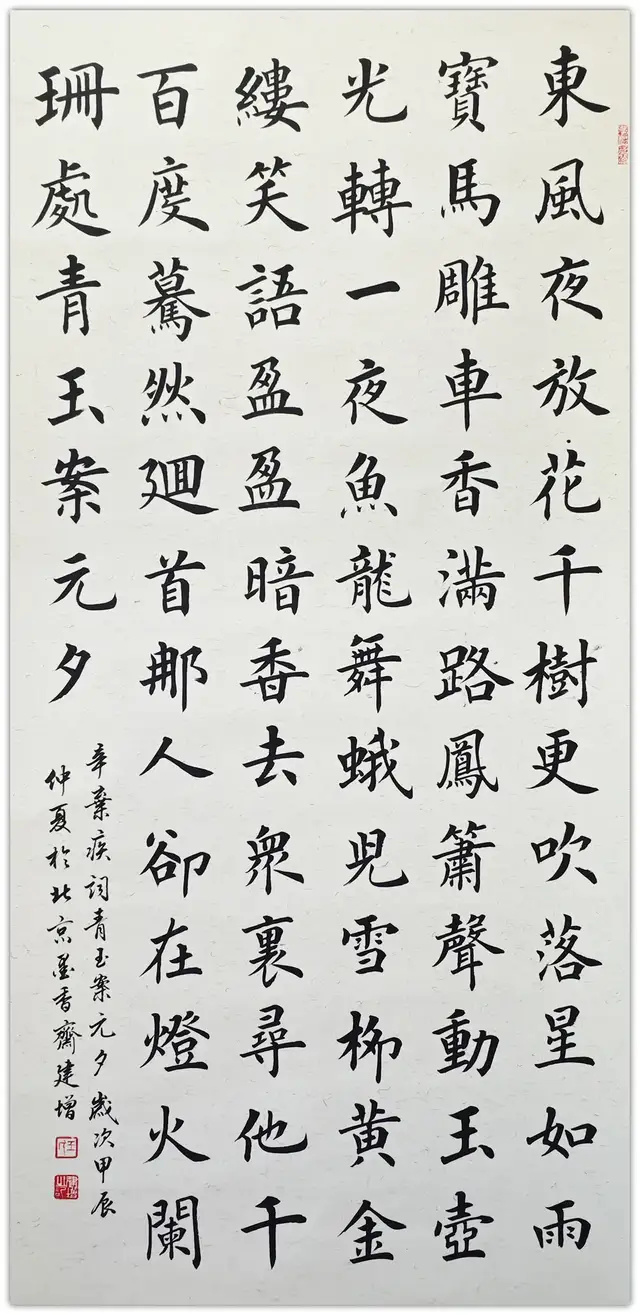 東風夜放花千樹更吹落星如雨
寶馬雕車香滿路鳳簫聲動玉壺
光轉一夜魚龍舞蛾兒雪柳黃金
縷笑語盈盈暗香去衆裏尋他千
百度驀然廻首那人卻在燈火闌
珊處青玉案元夕
辛棄疾詞青玉案元夕歲次甲辰
仲夏於北京墨香齋建增